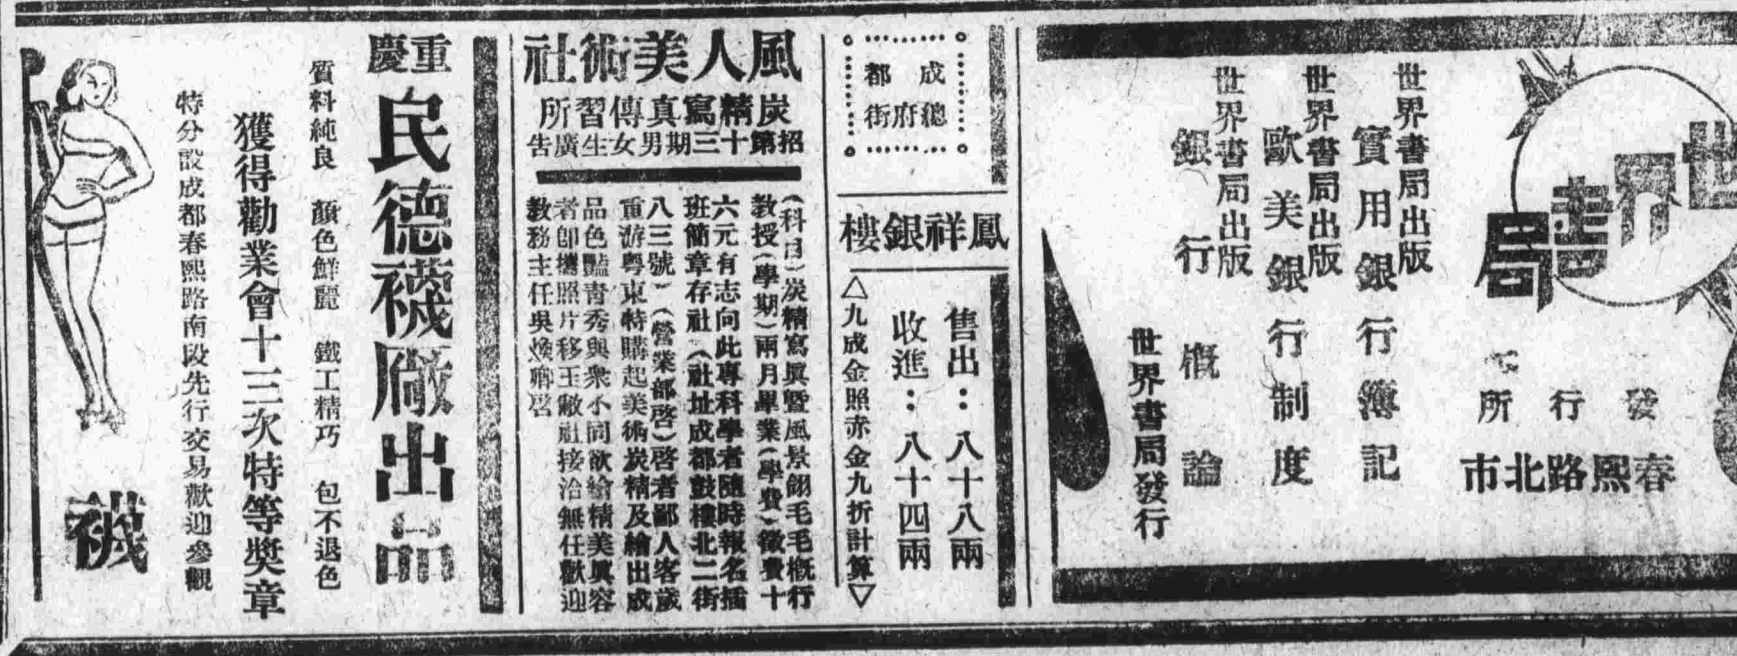 世界書局
發行所
春熙路北市
世界書局出版
實用銀行簿記
世界書局出版
歐美銀行制度
世界書局出版
銀行概論
世界書局發行
成都
總府街
鳳祥銀樓
售出：八十八兩
收進：八十四兩
△九成金照赤金九折計算▽
風人美術社
炭精寫真傳習所
招第十三期男女生廣告
(科目)炭精寫眞暨風景翎毛毛概行
教授(學期)兩月畢業(學費)徵費十
六元有志向此專科學者隨時報名插
班簡章存社(社址成都鼓樓北二街
八三號)(營業部啓)啓者鄙人客歲
重游粵東特購起美術炭精及繪出成
品色豔青秀與衆不同欲繪精美眞容
者卽攜照片移玉敝社接洽無任歡迎
教務主任吳煥卿啓
重慶
民德襪廠出品
質料純良　顏色鮮麗　鐵工精巧　包不退色
獲得勸業會十三次特等獎章
特分設成都春熙路南段先行交易歡迎參觀
襪